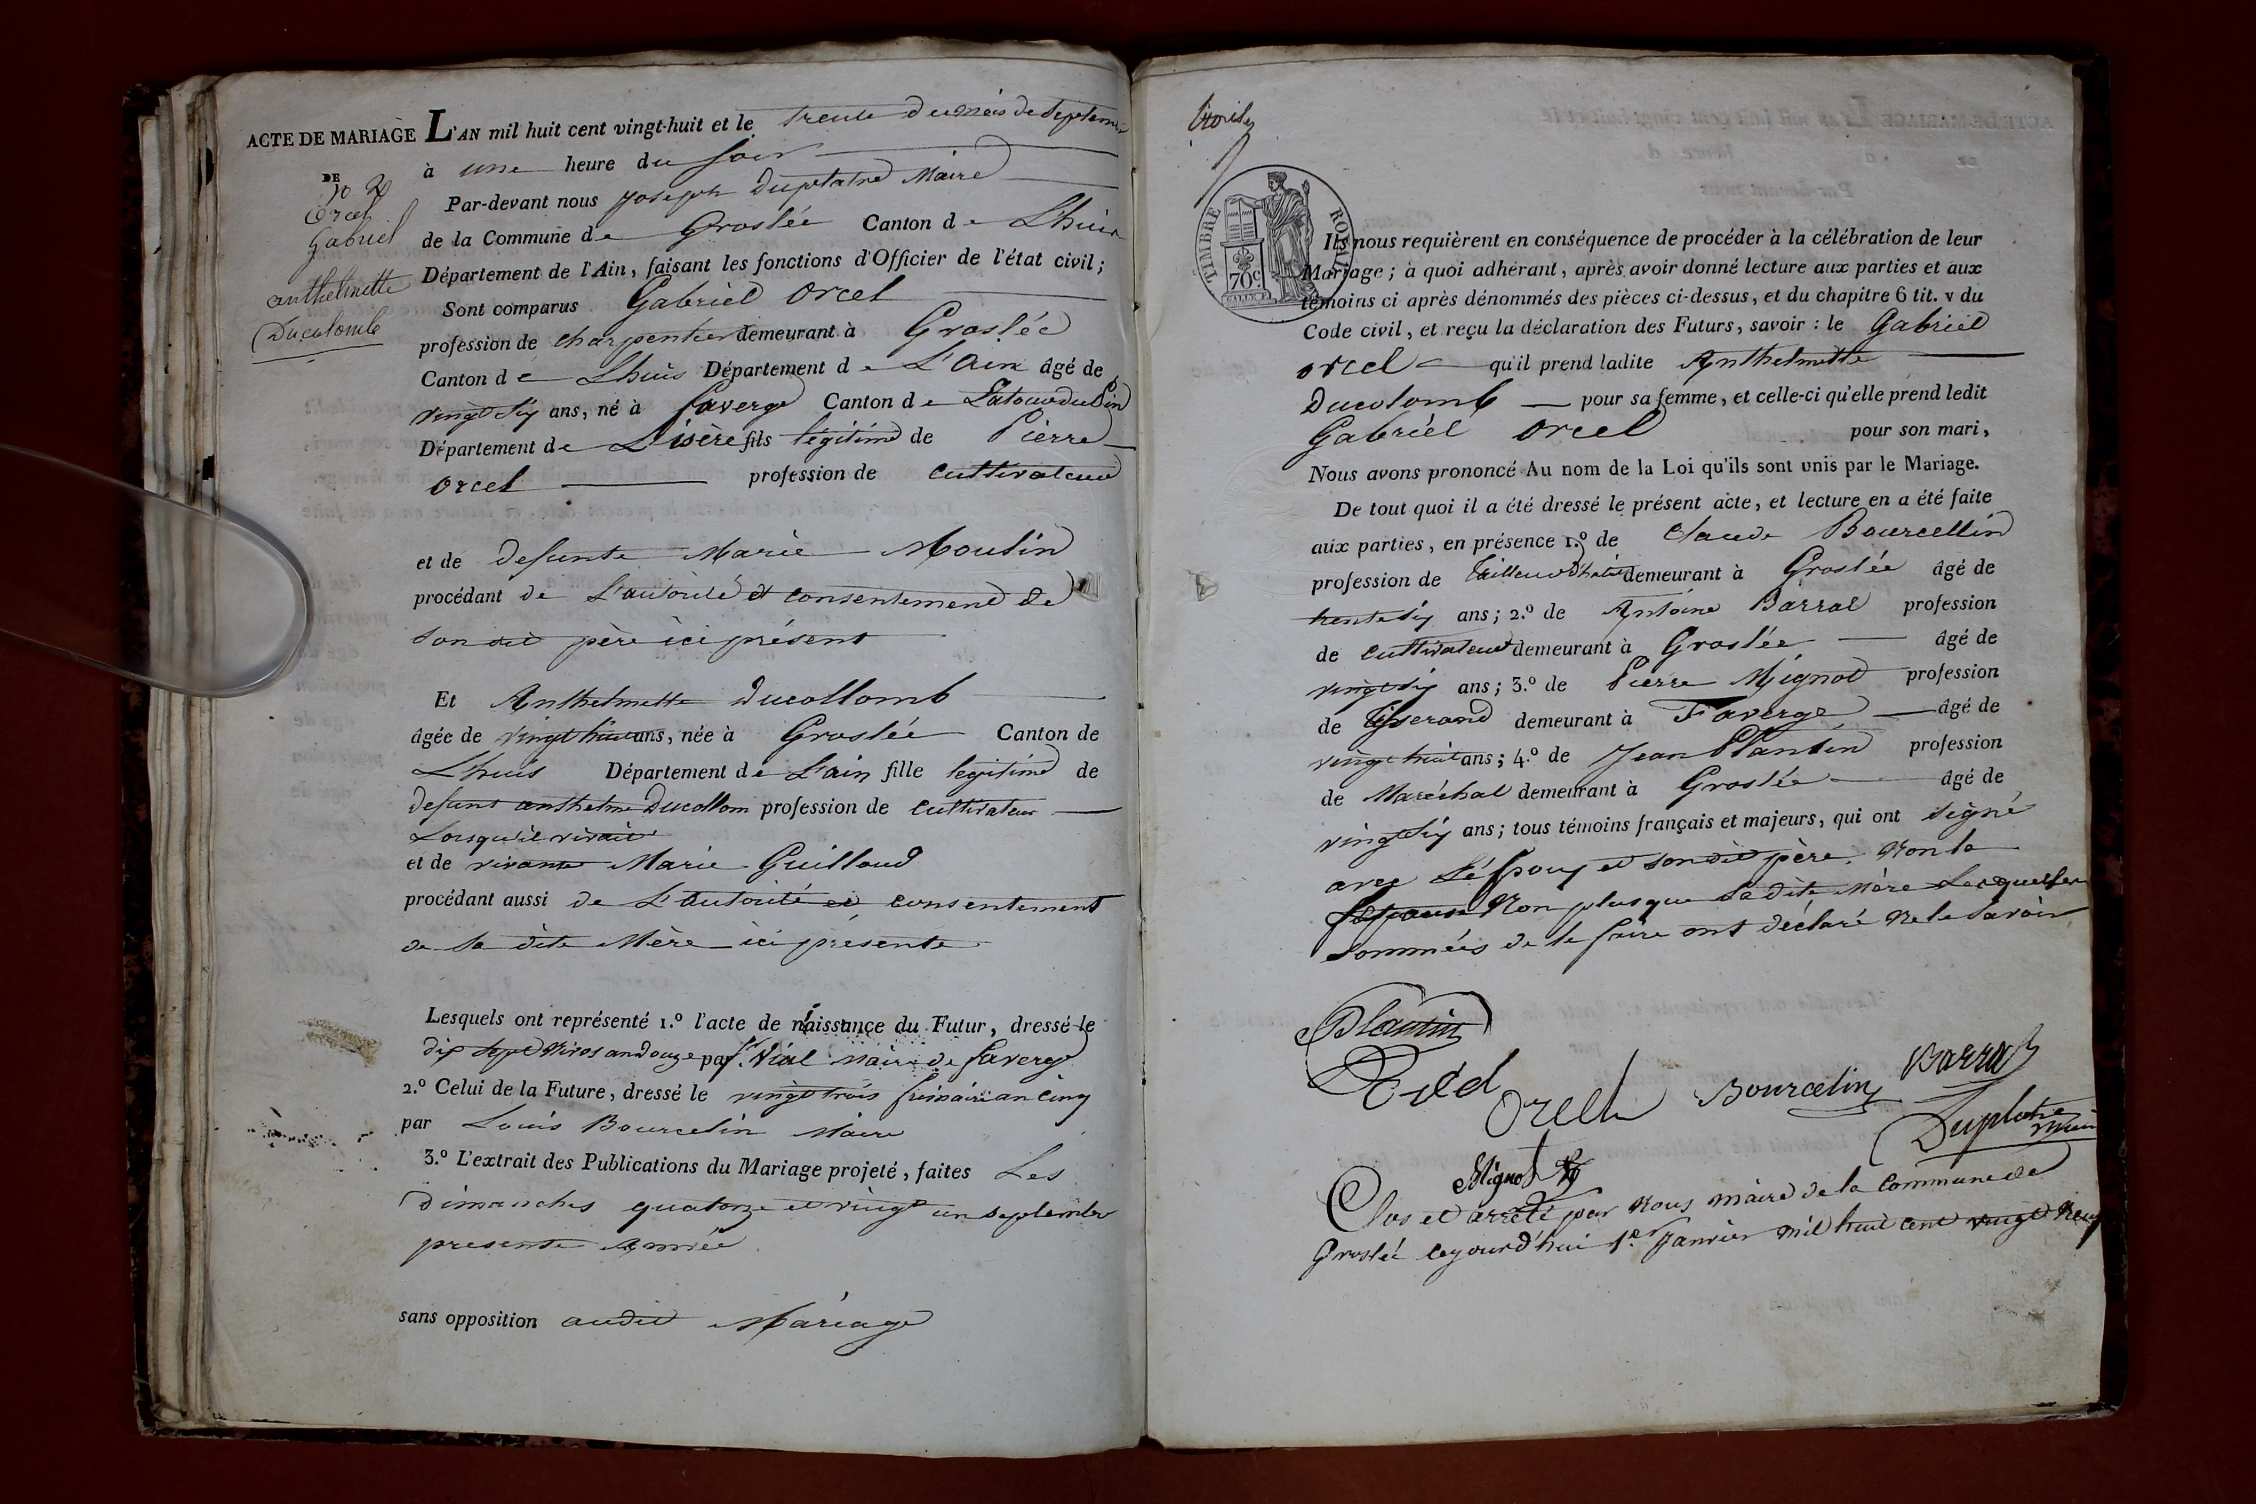 ACTE DE MARIAGE L'AN mil huit cent vingt-huit et le trente du mois de septembre
à une heure du soir
DE
Orcel
Gabriel
anthelmette
Ducolomb
Par-devant nous joseph Duplatre Maire
de la Commune de Groslée Canton de Lhuis
Département de l'Ain, faisant les fonctions d'Officier de l'état civil;
Sont comparus Gabriel Orcel
profession de charpentier demeurant à Groslée
Canton de Lhuis Département de L'Ain âgé de
vingt six ans, né à faverge Canton de Latourdupin
Département de L'isère fils légitime de Pierre
orcel profession de cultivateur
et de defunte Marie Moulin
procédant de L'autorité et consentement de
son dit père ici présent
Et Anthelmette Ducollomb
âgée de vingt huit ans, née à Groslée Canton de
Lhuis Département de L'ain fille legitime de
defunt anthelme Ducollom profession de cultivateur
Lorsqu'il vivait
et de vivante Marie Guilloud
procédant aussi de L'autorité et consentement
de sa dite Mère ici présente
Lesquels ont représenté 1.º l'acte de naissance du Futur, dressé le
dix sept Nivos an douze par Vial Maire de faverge
2.º Celui de la Future, dressé le vingt trois frimaire an cinq
par Louis Bourcelin Maire
3.º L'extrait des Publications du Mariage projeté, faites Les
Dimanches quatorze et vingt un septembre
presente Année
sans opposition audit Mariage
TIMBRE ROYAL
70c
Ils nous requièrent en conséquence de procéder à la célébration de leur
Mariage; à quoi adhérant, après avoir donné lecture aux parties et aux
témoins ci après dénommés des pièces ci-dessus, et du chapitre 6 tit. v du
Code civil, et reçu la déclaration des Futurs, savoir: le Gabriel
orcel qu'il prend ladite Anthelmette
Ducolomb pour sa femme, et celle-ci qu'elle prend ledit
Gabriél Orcel pour son mari,
Nous avons prononcé Au nom de la Loi qu'ils sont unis par le Mariage.
De tout quoi il a été dressé le présent acte, et lecture en a été faite
aux parties, en présence 1.º de Claude Bourcellin
profession de tailleur d'habit demeurant à Groslée âgé de
trente six ans; 2.º de Antoine Barral profession
de cultivateur demeurant à Groslée âgé de
vingt six ans; 3.º de Pierre Mignot profession
de tisserand demeurant à Faverge âgé de
vingt huit ans; 4.º de Jean Plantin profession
de Maréchal demeurant à Groslée âgé de
vingt six ans; tous témoins français et majeurs, qui ont signé
avec L'époux et son dit père. Non la
ditte épouse Non plus que sa dite Mère Lesquelles
sommées de le faire ont déclaré Ne le savoir
Plantin
Orcel
Bourcelin
Barral
Duplatre
maire
Mignot
Clos et arrêté par Nous maire de la Commune de
Groslée cejourd'hui 1er janvier mil huit cent vingt neuf